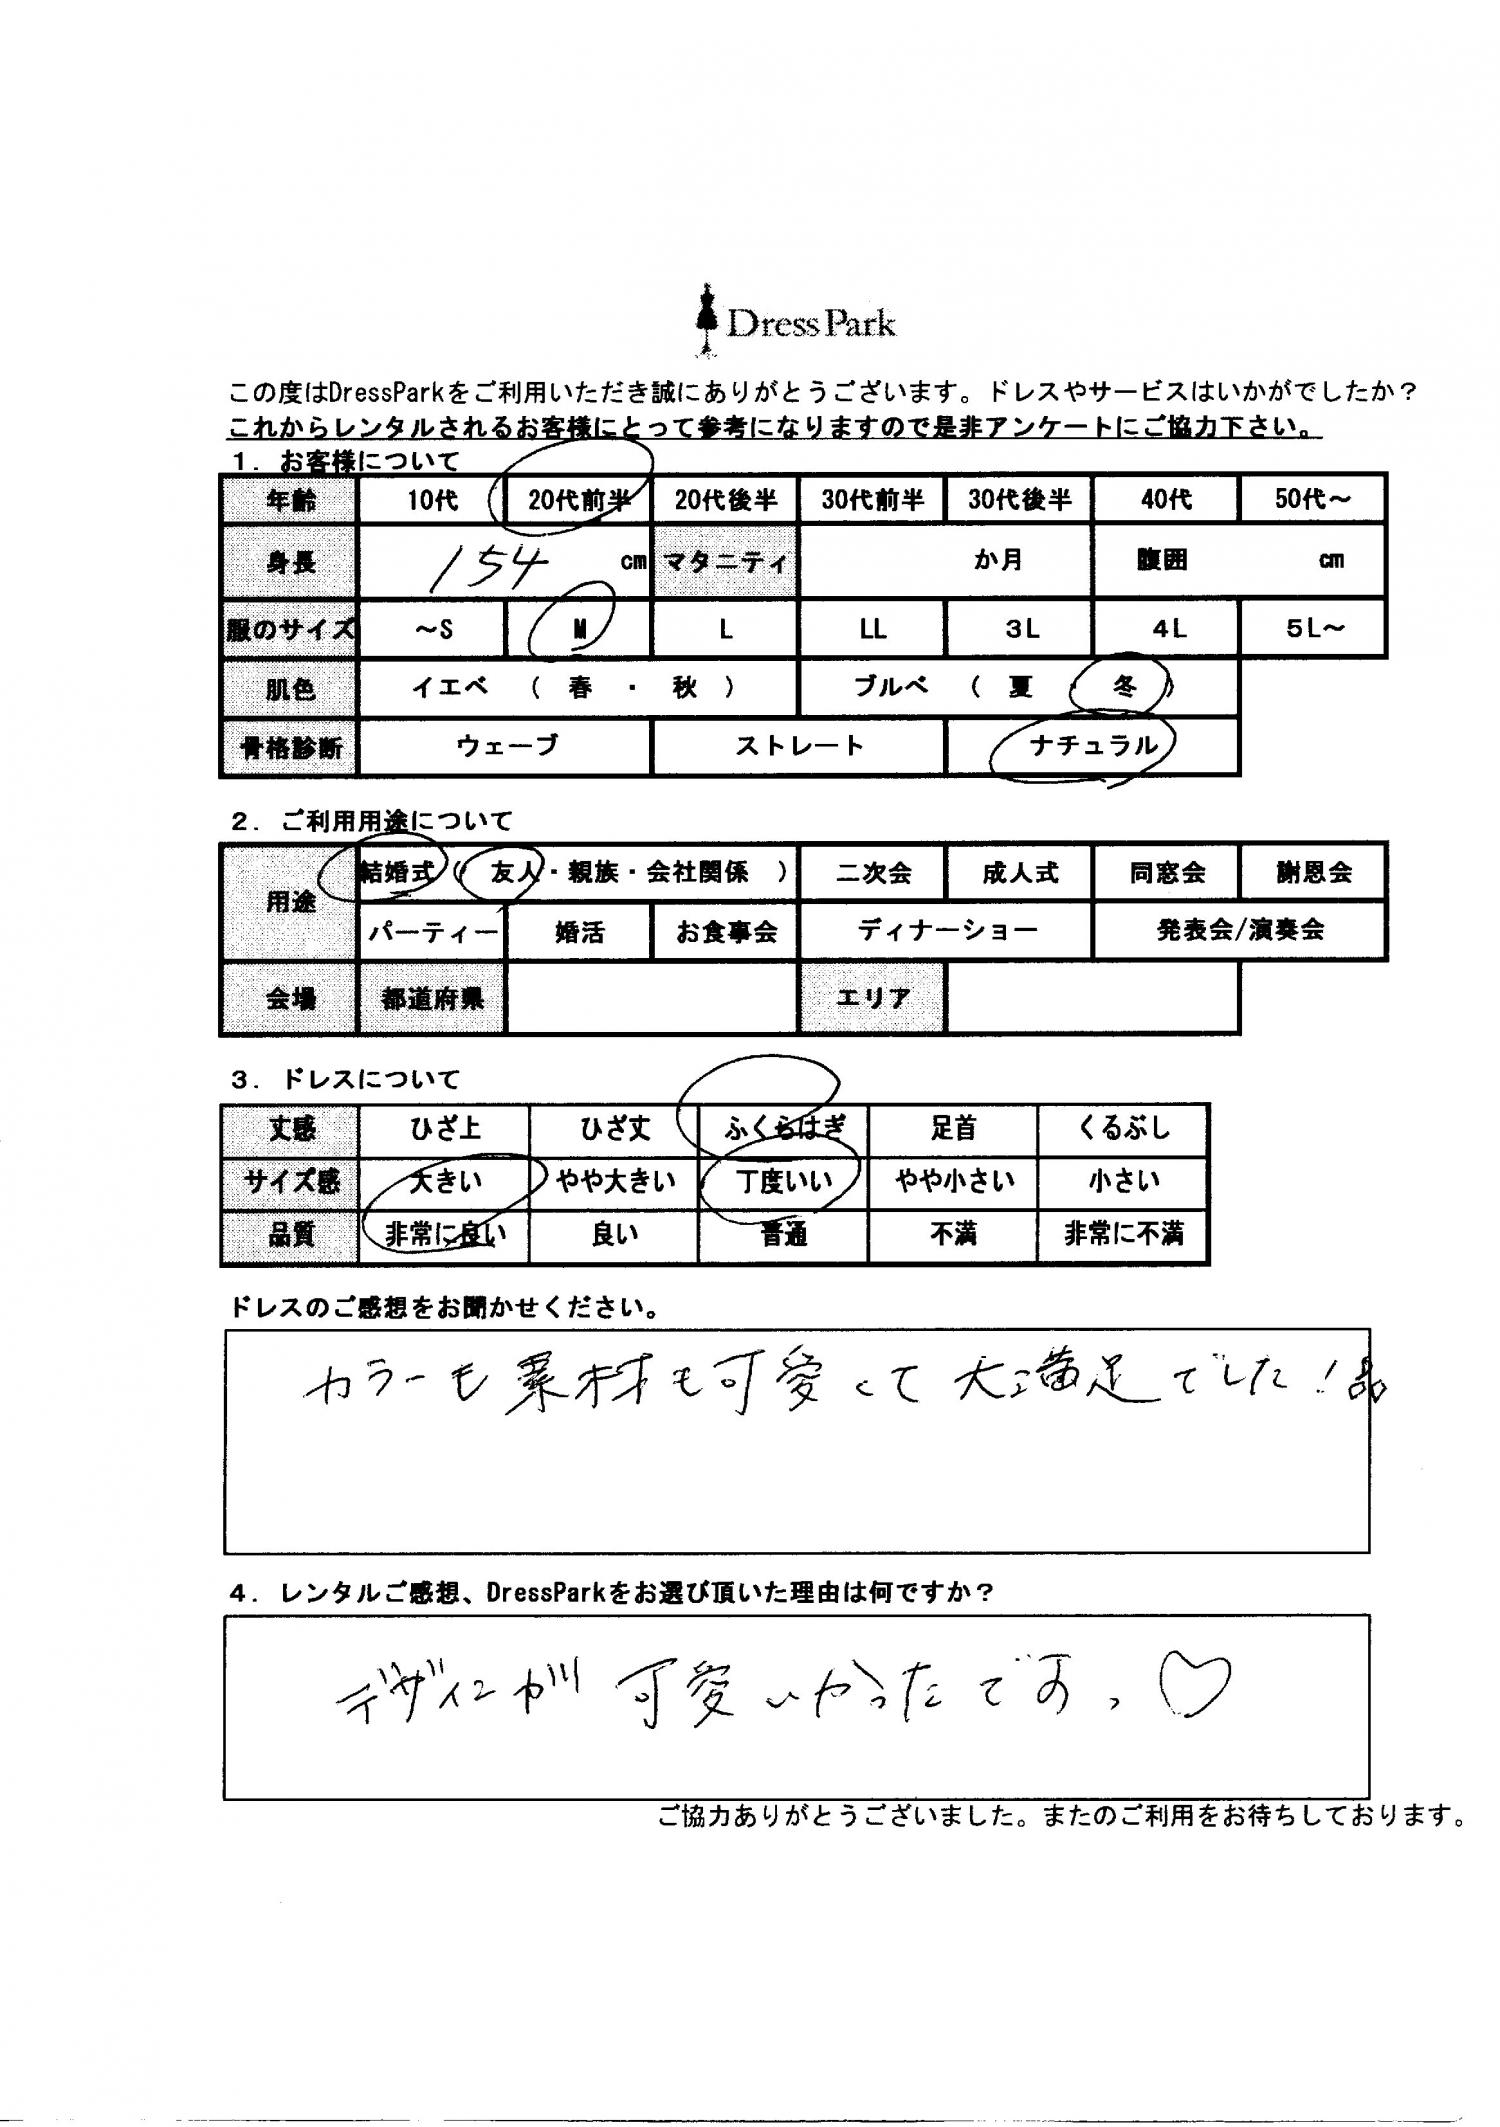 Dress Park
この度はDressParkをご利用いただき誠にありがとうございます。ドレスやサービスはいかがでしたか？
これからレンタルされるお客様にとって参考になりますので是非アンケートにご協力下さい。
1. お客様について
年齢 10代 20代前半 20代後半 30代前半 30代後半 40代 50代～
身長 154 cm マタニティ か月 腹囲 cm
服のサイズ ～S M L LL 3L 4L 5L～
肌色 イエベ （ 春 ・ 秋 ） ブルベ （ 夏 ・ 冬 ）
骨格診断 ウェーブ ストレート ナチュラル
2. ご利用用途について
用途 結婚式（ 友人・親族・会社関係 ） 二次会 成人式 同窓会 謝恩会
パーティー 婚活 お食事会 ディナーショー 発表会/演奏会
会場 都道府県 エリア
3. ドレスについて
丈感 ひざ上 ひざ丈 ふくらはぎ 足首 くるぶし
サイズ感 大きい やや大きい 丁度いい やや小さい 小さい
品質 非常に良い 良い 普通 不満 非常に不満
ドレスのご感想をお聞かせください。
カラーも素材も可愛くて大満足でした！
4. レンタルご感想、DressParkをお選び頂いた理由は何ですか？
デザインが可愛いかったです。♡
ご協力ありがとうございました。またのご利用をお待ちしております。